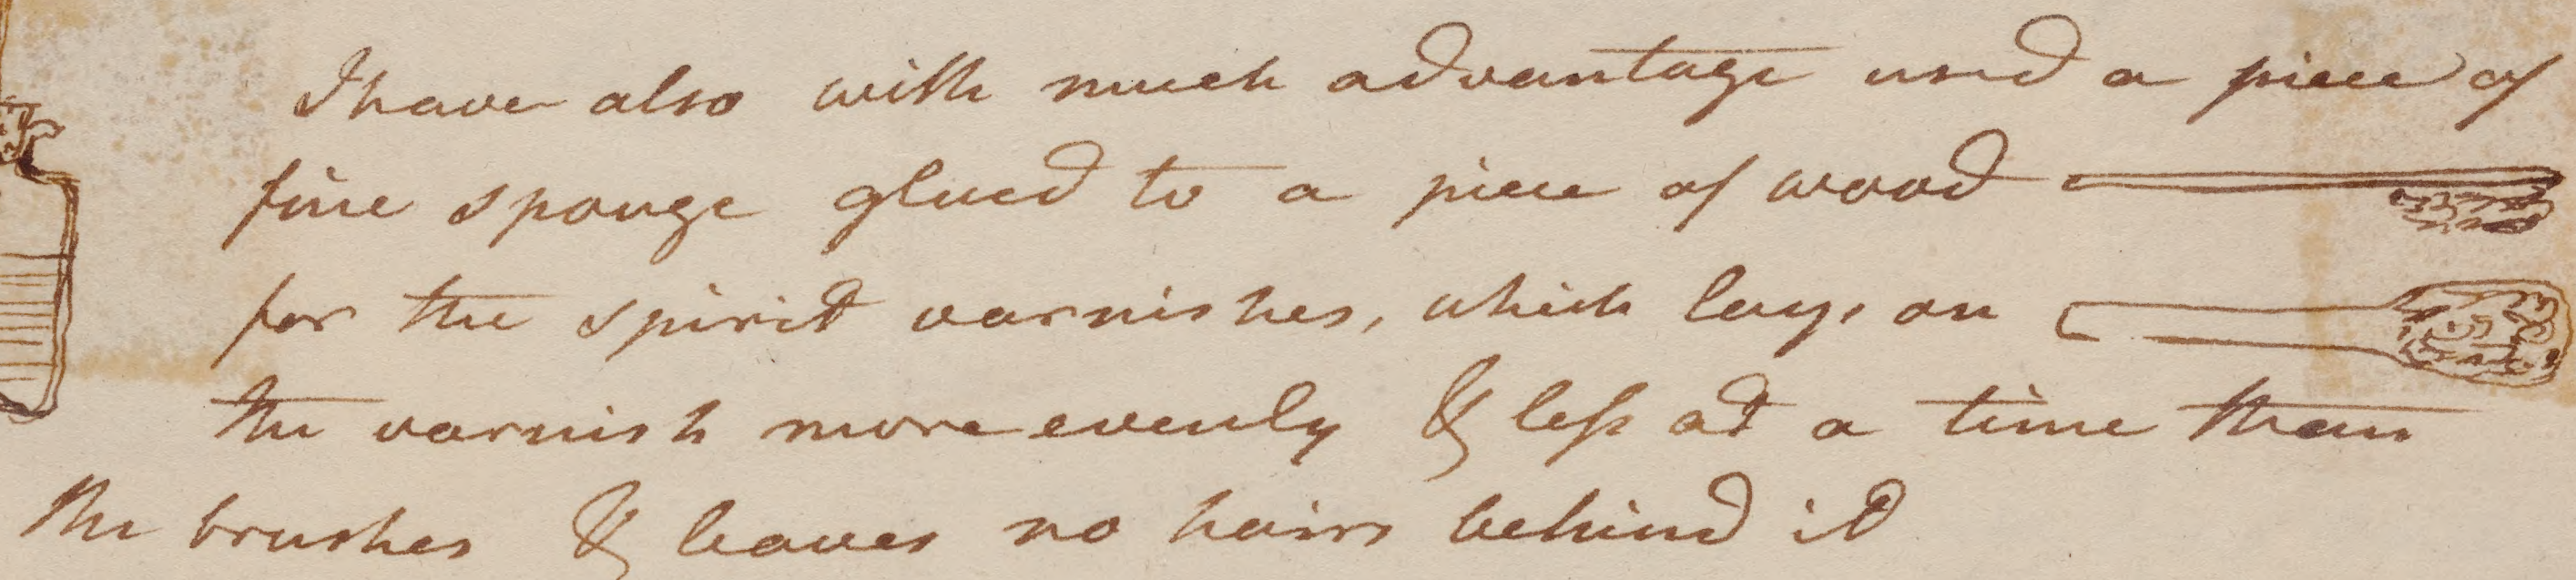 I have also with much advantage used a piece of
fine sponge glued to a piece of wood
for the spirit varnishes, which lays on
the varnish more evenly & leſs at a time than
the brushes & leaves no hairs behind it